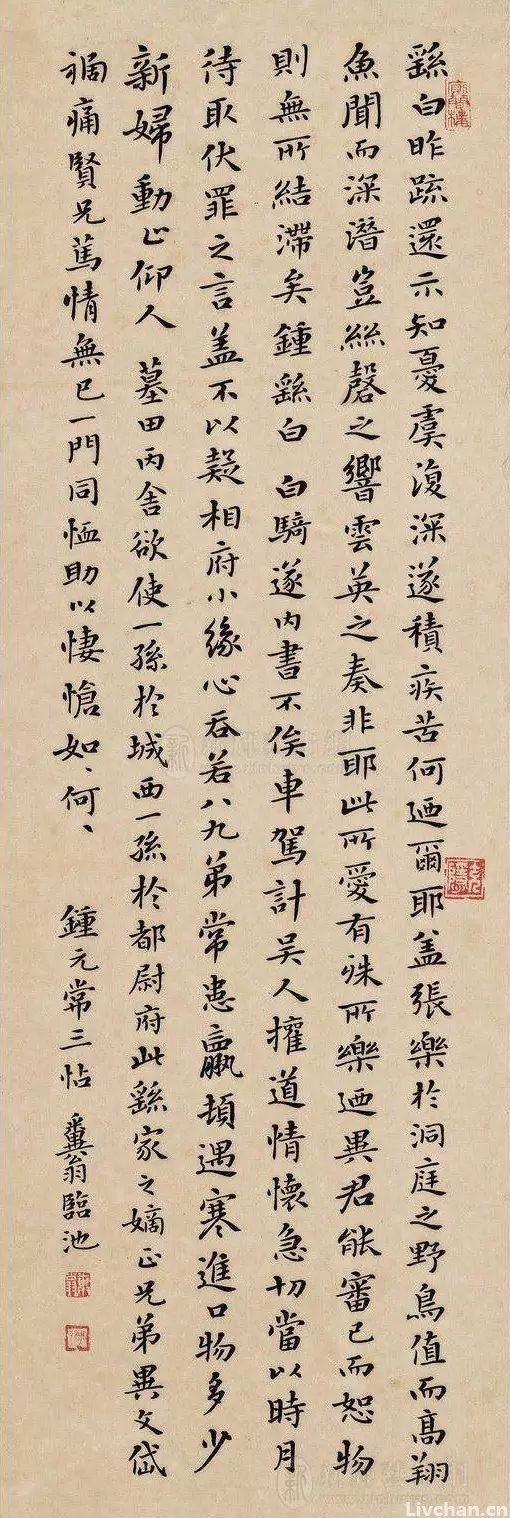 繇白昨疏還示知憂虞復深遂積疾苦何迺爾耶盖張樂於洞庭之野鳥值而高翔
魚聞而深潛豈絲磬之響雲英之奏非耶此所愛有殊所樂迺異君能審己而恕物
則無所結滯矣鍾繇白 白騎遂內書不俟車駕計吴人擁道情懷急切當以時月
待取伏罪之言盖不以疑相府小緣心吞若八九弟常患羸頓遇寒進口物多少
新婦動止仰人 墓田丙舍欲使一孫於城西一孫於都尉府此繇家之嫡正兄弟異文岱
禍痛賢兄篤情無已一門同恤助以悽愴如〻何〻
鍾元常三帖 糞翁臨池
Livchan.cn